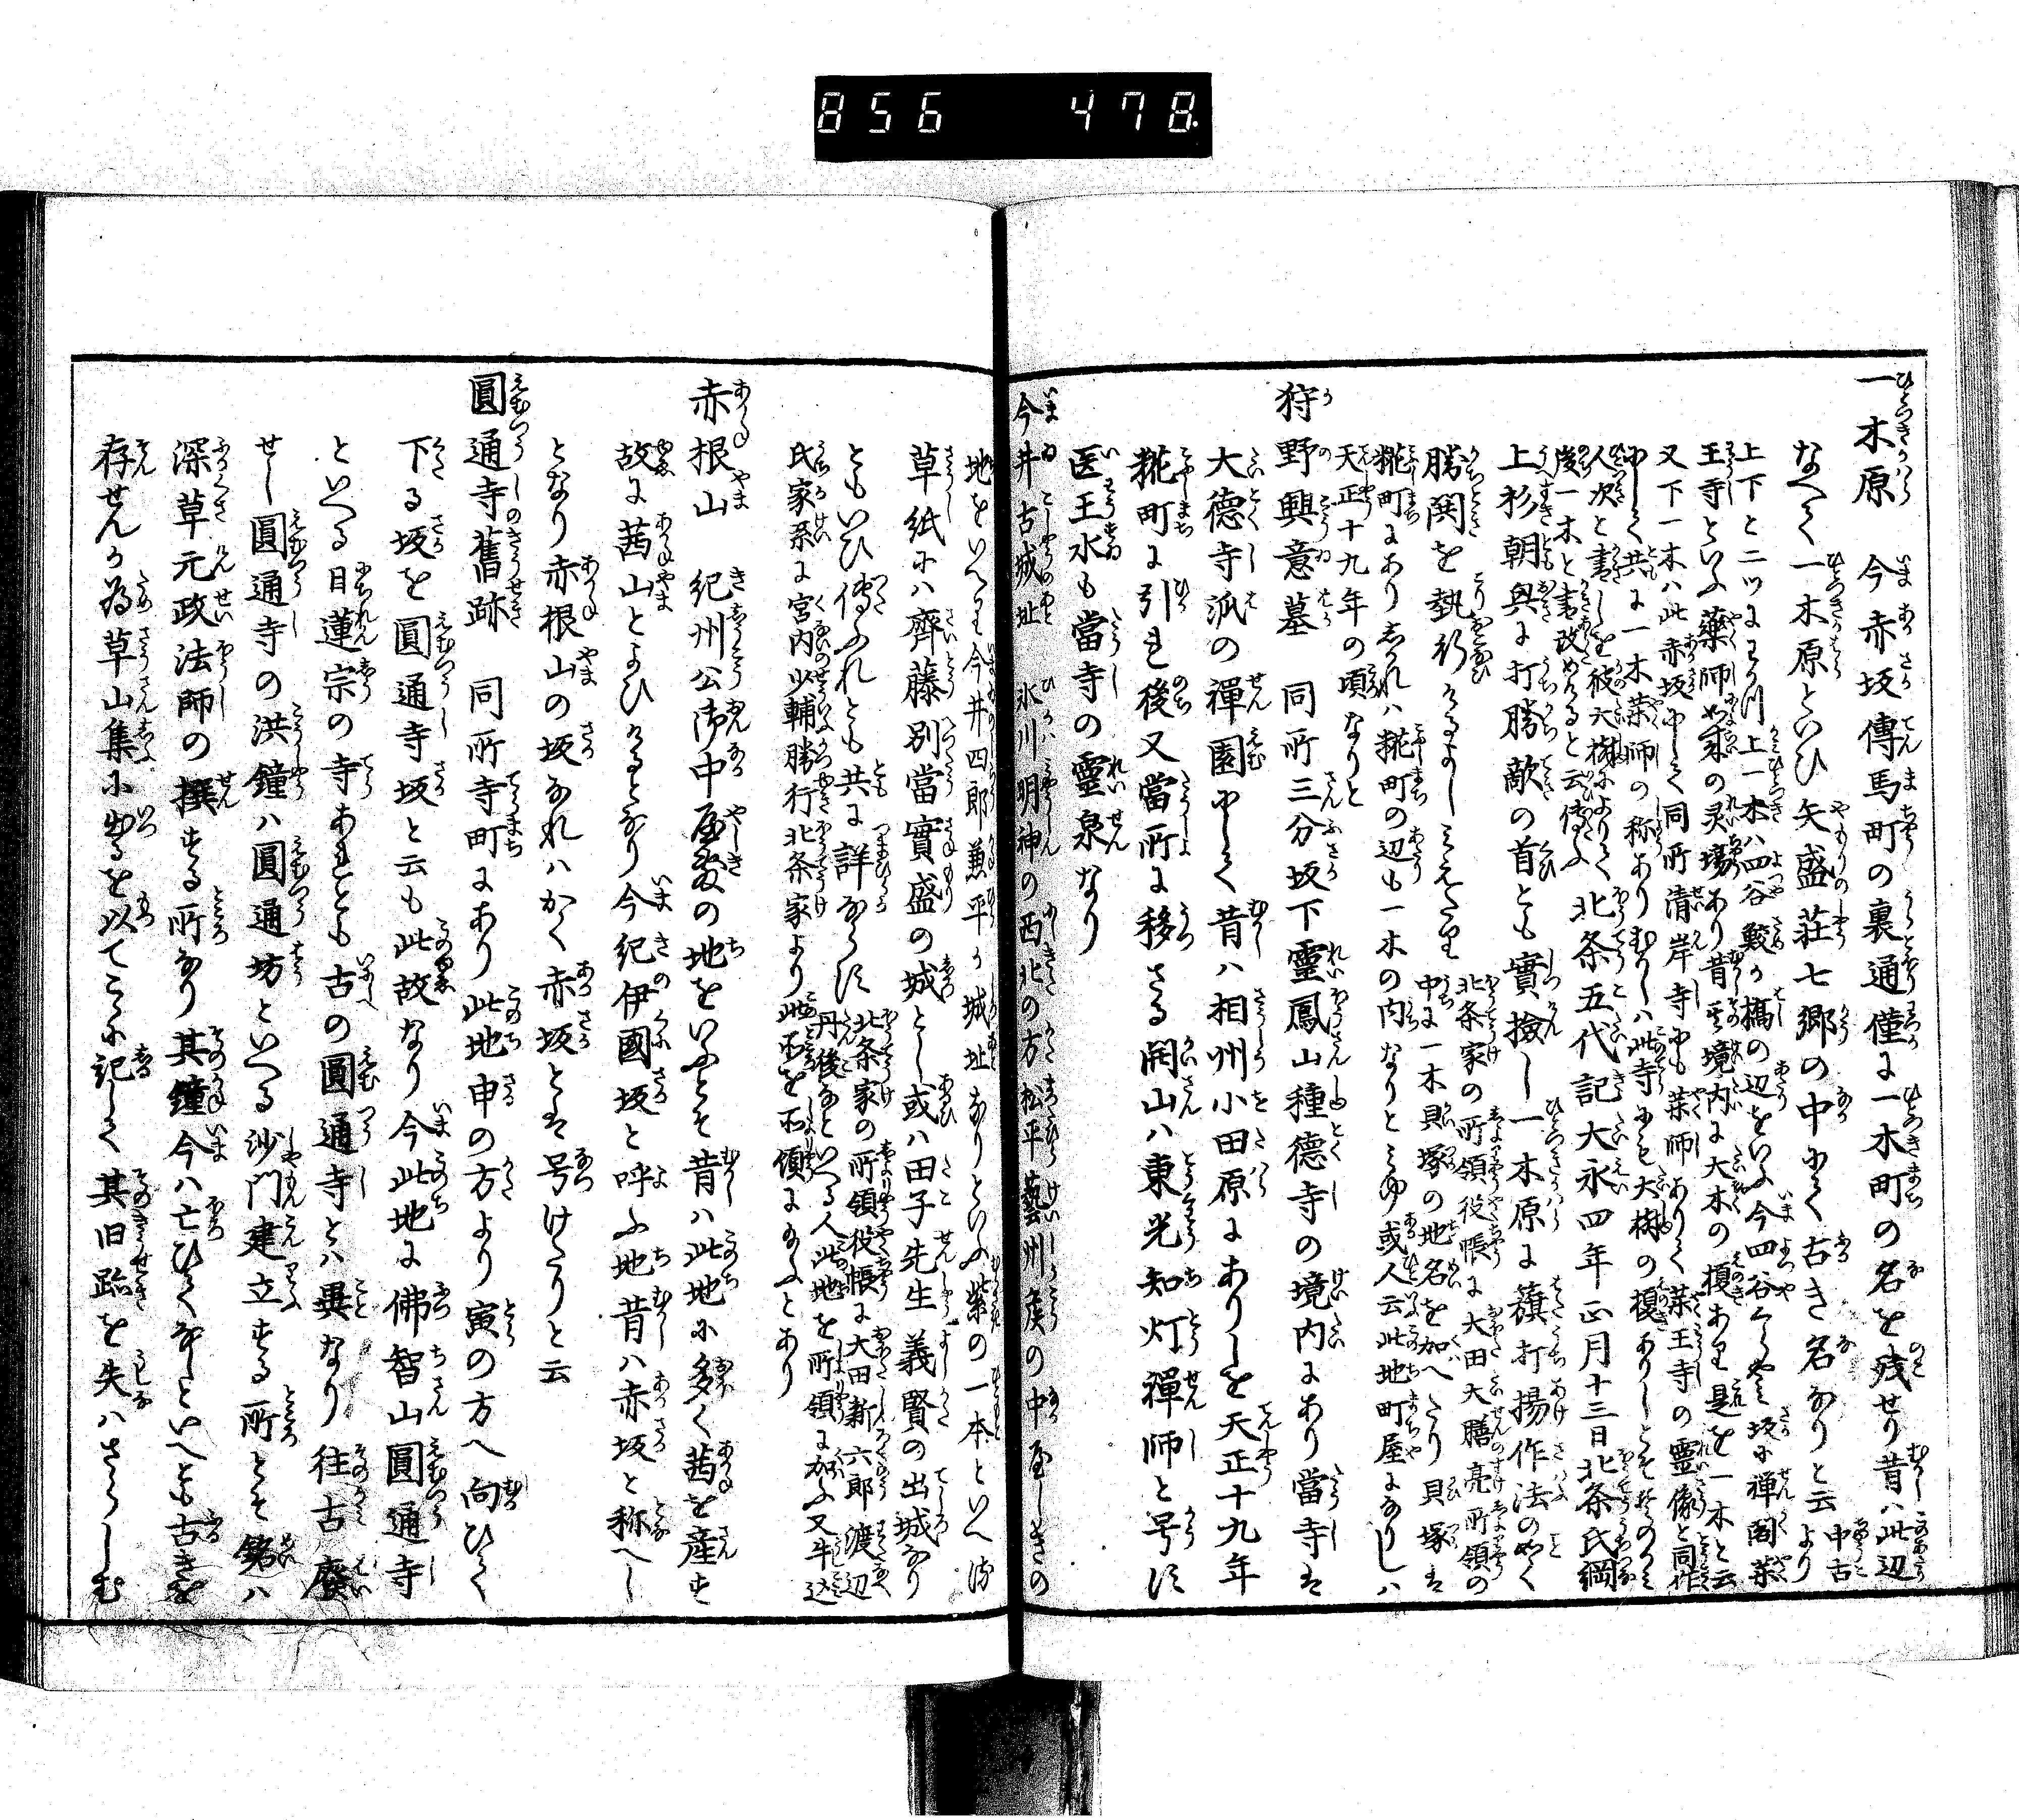 856 478
一木原　今赤坂傳馬町の裏通僅に一木町の名を残せり昔ハ此辺
なへて一木原といひ矢盛荘七郷の中にて古き名なりと云
中古より
上下と二ツにわかつ上一木ハ四谷鮫か橋の辺をいふ今四谷くらやミ坂に禅閣薬
王寺といふ薬師如来の灵場あり昔其境内に大木の榎あり是を一木と云
又下一木ハ此赤坂にして同所清岸寺にも薬師ありて薬王寺の霊像と同作
にして共に一木薬師の称ありむかしハ此寺にも大樹の榎ありしとそそのかミ
人次と書しを彼大樹によりて
後一木と書改めけると云傳ふ
北条五代記大永四年正月十三日北条氏綱
上杉朝興に打勝敵の首とも實撿し一木原に籏打揚作法のめく
勝閧を執行けるよしミえたり
北条家の所領役帳に大田大膳亮所領の
中に一木貝塚の地名を加へたり貝塚は
糀町にありしかれハ糀町の辺も一木の内なりとミゆ或人云此地町屋になりしハ
天正十九年の頃なりと
狩野興意墓　同所三分坂下靈鳳山種德寺の境内にあり當寺は
大德寺派の禪園にして昔ハ相州小田原にありしを天正十九年
糀町に引き後又當所に移さる開山ハ東光知灯禪師と号す
医王水も當寺の靈泉なり
今井古城址　氷川明神の西北の方松平藝州侯の中屋しきの
地をいへり今井四郎兼平か城址なりといふ紫の一本といへる
草紙にハ齊藤別當實盛の城とし或ハ田子先生義賢の出城なり
ともいひ傳ふれとも共に詳ならす
北条家の所領役帳に大田新六郎渡辺
丹後なといへる人此地を所領に加ふ又牛込
氏家系に宮内少輔勝行北条家より此所を所領に加ふとあり
赤根山　紀州公御中屋敷の地をいふとそ昔ハ此地に多く茜を産す
故に茜山とよひけるとなり今紀伊國坂と呼ふ地昔ハ赤坂と称へし
となり赤根山の坂なれハかく赤坂とは号けたりと云
圓通寺舊跡　同所寺町にあり此地申の方より寅の方へ向ひて
下る坂を圓通寺坂と云も此故なり今此地に佛智山圓通寺
といへる日蓮宗の寺あれとも古の圓通寺とハ異なり往古廢
せし圓通寺の洪鐘ハ圓通坊といへる沙門建立する所とそ銘ハ
深草元政法師の撰する所なり其鐘今ハ亡ひてなしといへとも古きを
存せんか為草山集に出るを以てこゝに記して其旧跡を失ハさらしむ